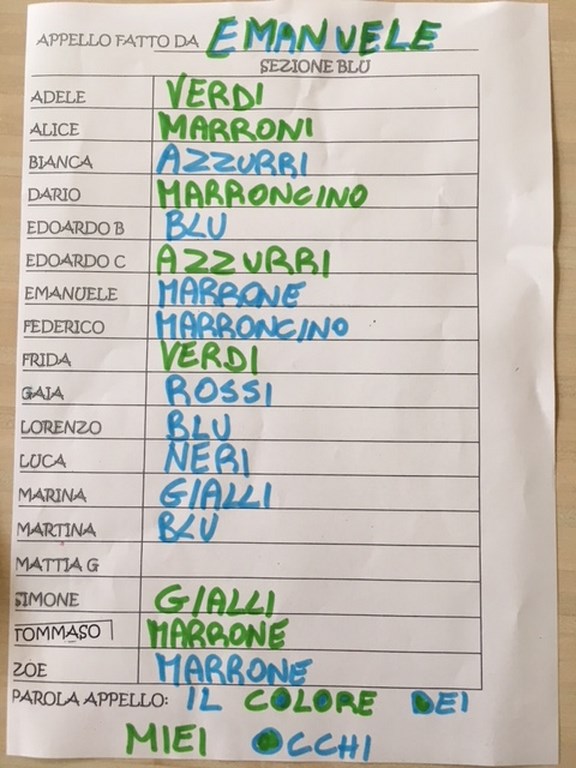 APPELLO FATTO DA EMANUELE
SEZIONE BLU
ADELE VERDI
ALICE MARRONI
BIANCA AZZURRI
DARIO MARRONCINO
EDOARDO B BLU
EDOARDO C AZZURRI
EMANUELE MARRONE
FEDERICO MARRONCINO
FRIDA VERDI
GAIA ROSSI
LORENZO BLU
LUCA NERI
MARINA GIALLI
MARTINA BLU
MATTIA G
SIMONE GIALLI
TOMMASO MARRONE
ZOE MARRONE
PAROLA APPELLO: IL COLORE DEI
MIEI OCCHI